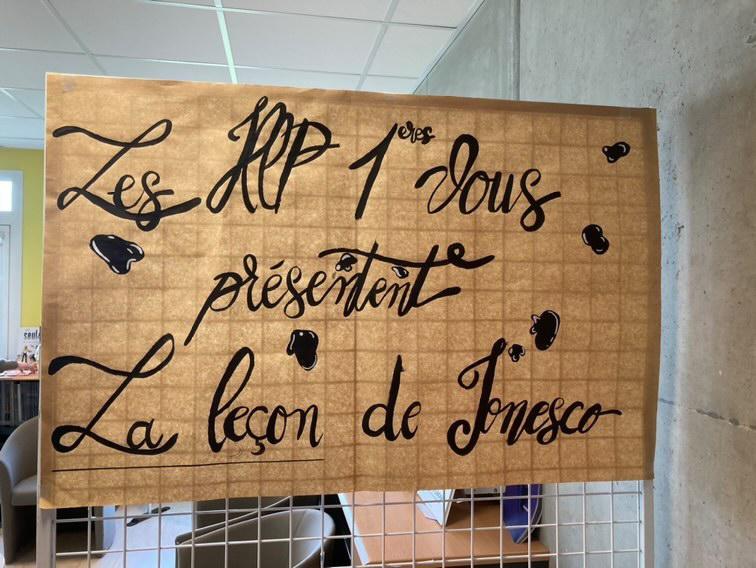 Les HLP 1ères Vous
présentent
La leçon de Ionesco